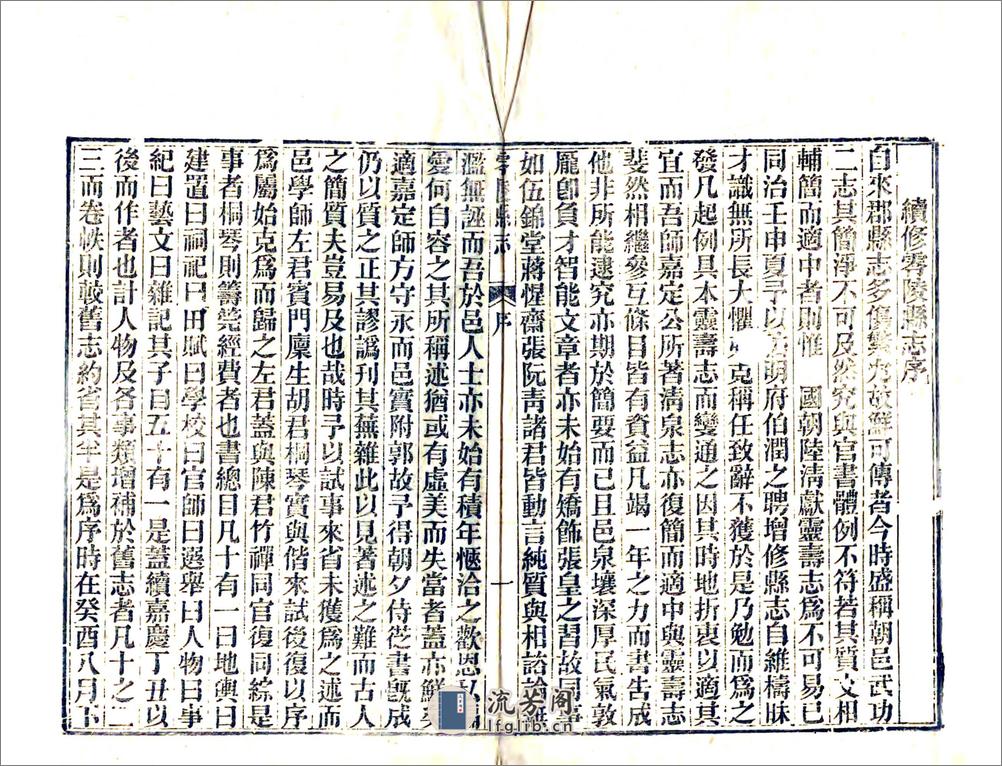 續修零陵縣志序
自來郡縣志多傷繁冗故鮮可傳者今時盛稱朝邑武功
二志其簡淨不可及然究與官書體例不符若其質文相
輔簡而適中者則惟 國朝陸淸獻靈壽志爲不可易已
同治壬申夏予以 明府伯潤之聘增修縣志自維檮昧
才識無所長大懼 克稱任致辭不獲於是乃勉而爲之
發凡起例具本靈壽志而變通之因其時地折衷以適其
宜而吾師嘉定公所著淸泉志亦復簡而適中與靈壽志
斐然相繼參互條目皆有資益凡竭一年之力而書告成
他非所能逮究亦期於簡要而已且邑泉壤深厚民氣敦
厖卽負才智能文章者亦未始有矯飾張皇之習故同事
如伍錦堂蔣惺齋張阮靑諸君皆動言純質與相諮論雖
零陵縣志 序 一
濫無誣而吾於邑人士亦未始有積年愜洽之歡恩私
愛何自容之其所稱述猶或有虛美而失當者蓋亦鮮矣
適嘉定師方守永而邑實附郭故予得朝夕侍從書旣成
仍以質之正其謬譌刊其無雜此以見著述之難而古人
之簡質夫豈易及也哉時予以試事來省未獲爲之述而
邑學師左君賓門廩生胡君桐琴實與偕來試後復以序
爲屬始克爲而歸之左君蓋與陳君竹禪同官復同綜是
事者桐琴則籌筦經費者也書總目凡十有一曰地輿曰
建置曰祠祀曰田賦曰學校曰官師曰選舉曰人物曰事
紀曰藝文曰雜記其子目五十有一是蓋續嘉慶丁丑以
後而作者也計人物及各事類增補於舊志者凡十之二
三而卷帙則較舊志約省其半是爲序時在癸酉八月下
流芳阁
lfglib.cn